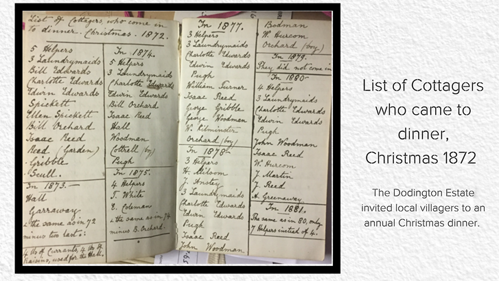 List of Cottagers who come in
to dinner. Christmas. 1872.
5 Helpers
3 Laundrymaids
Bill Edwards
Charlotte Edwards
Edwin Edwards
Sprckett
Ellen Sprckett
Bill Orchard
Isaac Reed
Read, (Garden)
Gribble
Scull.
In 1873.
Hall
Garraway.
the same as in 72
minus two last:
In 1874.
5 Helpers
3 Laundrymaids
Charlotte Edwards
Edwin Edwards
Bill Orchard
Isaac Reed
Hall
Woodman
Cottell boy
Pugh
In 1875.
4 Helpers
T. White
E. Coleman
the same as in 74
minus B. Orchard.
In 1877.
3 Helpers
3 Laundrymaids
Charlotte Edwards
Edwin Edwards
Pugh
William Turner
Isaac Reed
George Gribble
George Woodman
Orchard (boy)
In 1878
3 Helpers
3 Laundrymaids
Charlotte Edwards
Edwin Edwards
Pugh
Isaac Reed
John Woodman
Bodman
W. Hurcom
Orchard (boy)
In 1879.
They did not come in
In 1880
4 Helpers
3 Laundrymaids
Charlotte Edwards
Edwin Edwards
Pugh
John Woodman
Isaac Reed
W. Hurcom
J. Martin
J. Reed
H. Greenaway
In 1881.
The same as in 80, only
7 Helpers instead of 4.
List of Cottagers
who came to
dinner,
Christmas 1872
The Dodington Estate
invited local villagers to an
annual Christmas dinner.